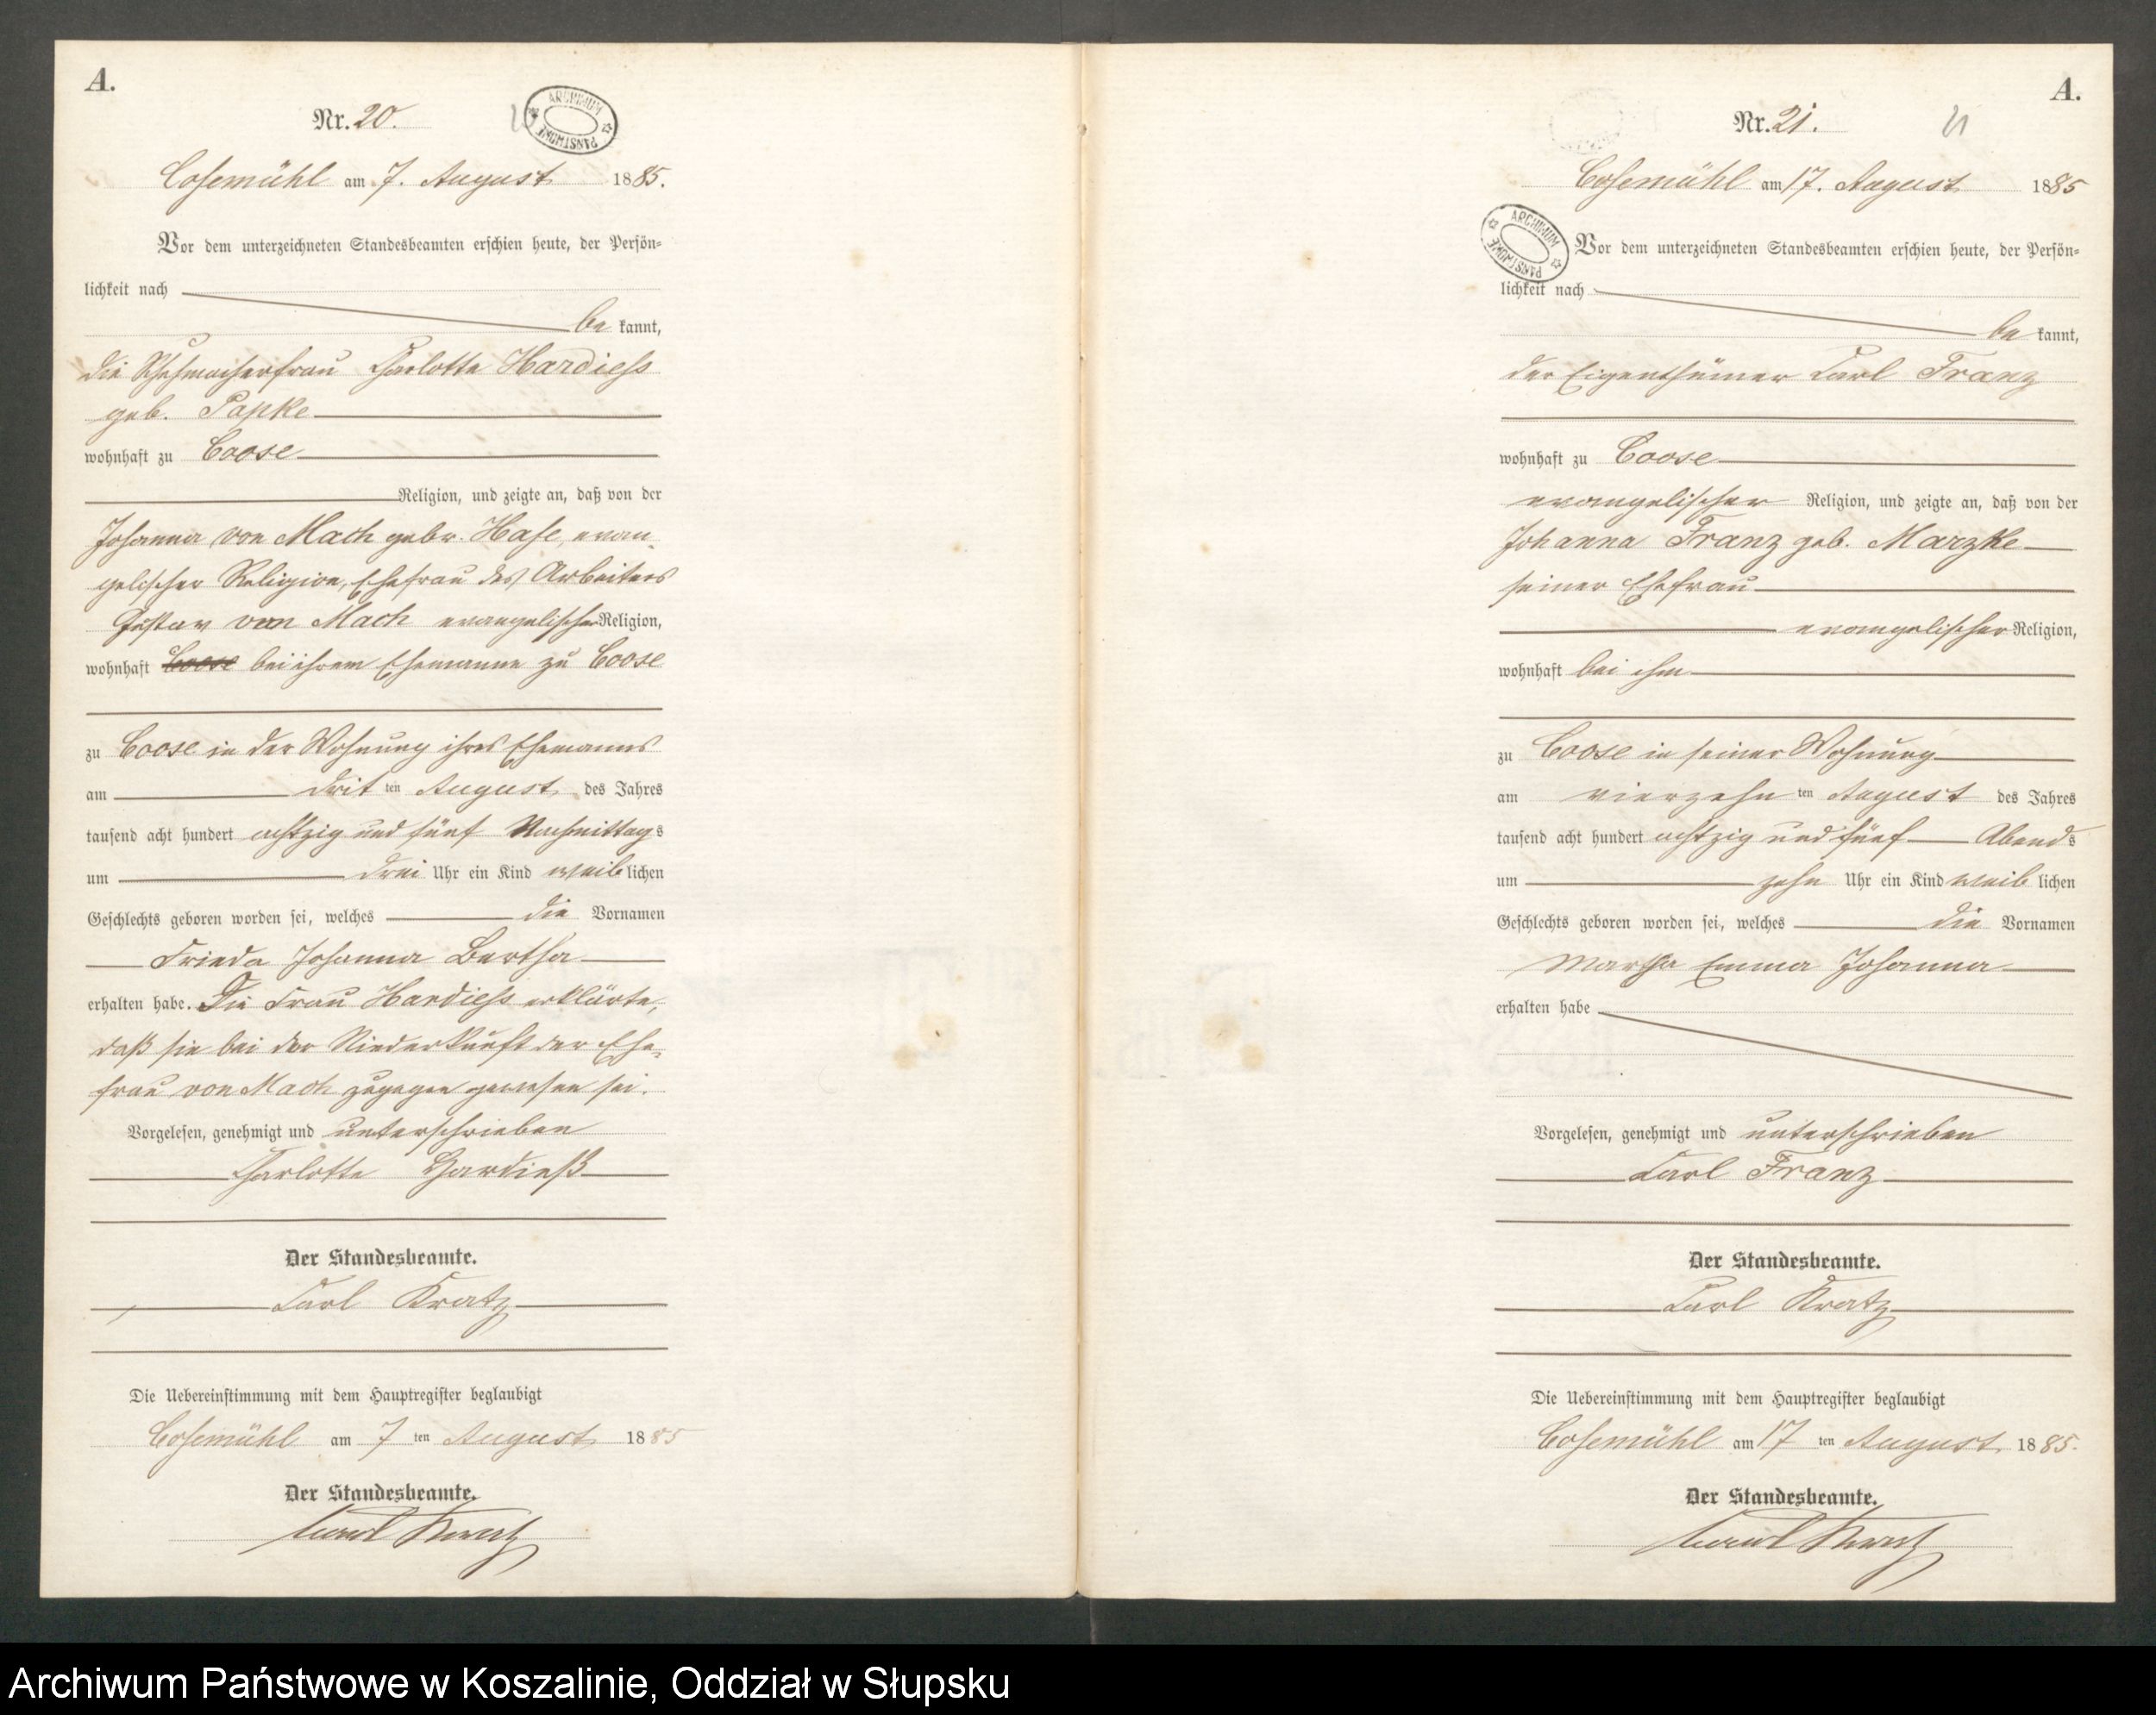 A.
Nr. 20.
ARCHIWUM PAŃSTWOWE
Cosemühl am 7. August 1885.
Vor dem unterzeichneten Standesbeamten erschien heute, der Persön-
lichkeit nach
be kannt,
die Schuhmacherfrau Charlotte Hardiess
geb. Papke
wohnhaft zu Coose
Religion, und zeigte an, daß von der
Johanna von Mach gebor. Hase, evan-
gelischer Religion, Ehefrau des Arbeiters
Gustav von Mach evangelischer Religion,
wohnhaft Coose bei ihrem Ehemanne zu Coose
zu Coose in der Wohnung ihres Ehemanns
am drit ten August des Jahres
tausend acht hundert achtzig und fünf Nachmittags
um drei Uhr ein Kind weib lichen
Geschlechts geboren worden sei, welches die Vornamen
Frieda Johanna Bertha
erhalten habe. Die Frau Hardiess erklärte,
daß sie bei der Niederkunft der Ehe-
frau von Mach zugegen gewesen sei.
Vorgelesen, genehmigt und unterschrieben
Charlotte Hardieß
Der Standesbeamte.
Carl Kratz
Die Uebereinstimmung mit dem Hauptregister beglaubigt
Cosemühl am 7 ten August 1885
Der Standesbeamte.
Carl Kratz
A.
Nr. 21.
21
Cosemühl am 17. August 1885
ARCHIWUM PAŃSTWOWE
Vor dem unterzeichneten Standesbeamten erschien heute, der Persön-
lichkeit nach
be kannt,
der Eigenthümer Carl Franz
wohnhaft zu Coose
evangelischer Religion, und zeigte an, daß von der
Johanna Franz geb. Marzke
seiner Ehefrau
evangelischer Religion,
wohnhaft bei ihm
zu Coose in seiner Wohnung
am vierzehn ten August des Jahres
tausend acht hundert achtzig und fünf Abends
um zehn Uhr ein Kind weib lichen
Geschlechts geboren worden sei, welches die Vornamen
Martha Emma Johanna
erhalten habe
Vorgelesen, genehmigt und unterschrieben
Carl Franz
Der Standesbeamte.
Carl Kratz
Die Uebereinstimmung mit dem Hauptregister beglaubigt
Cosemühl am 17 ten August 1885.
Der Standesbeamte.
Carl Kratz
Archiwum Państwowe w Koszalinie, Oddział w Słupsku